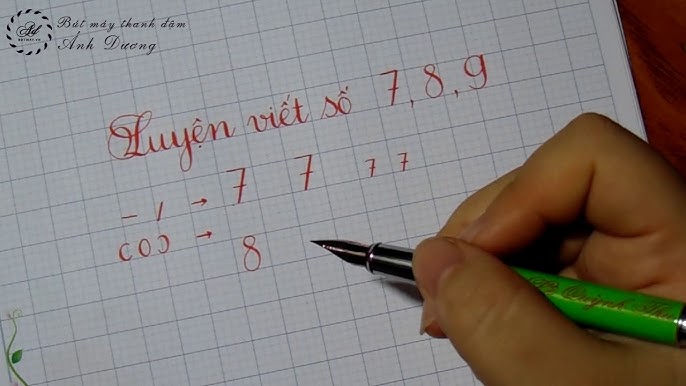 Bút máy thanh đậm
Ánh Dương
Luyện viết số 7, 8, 9
- / → 7 7 7 7
( 0 ) → 8